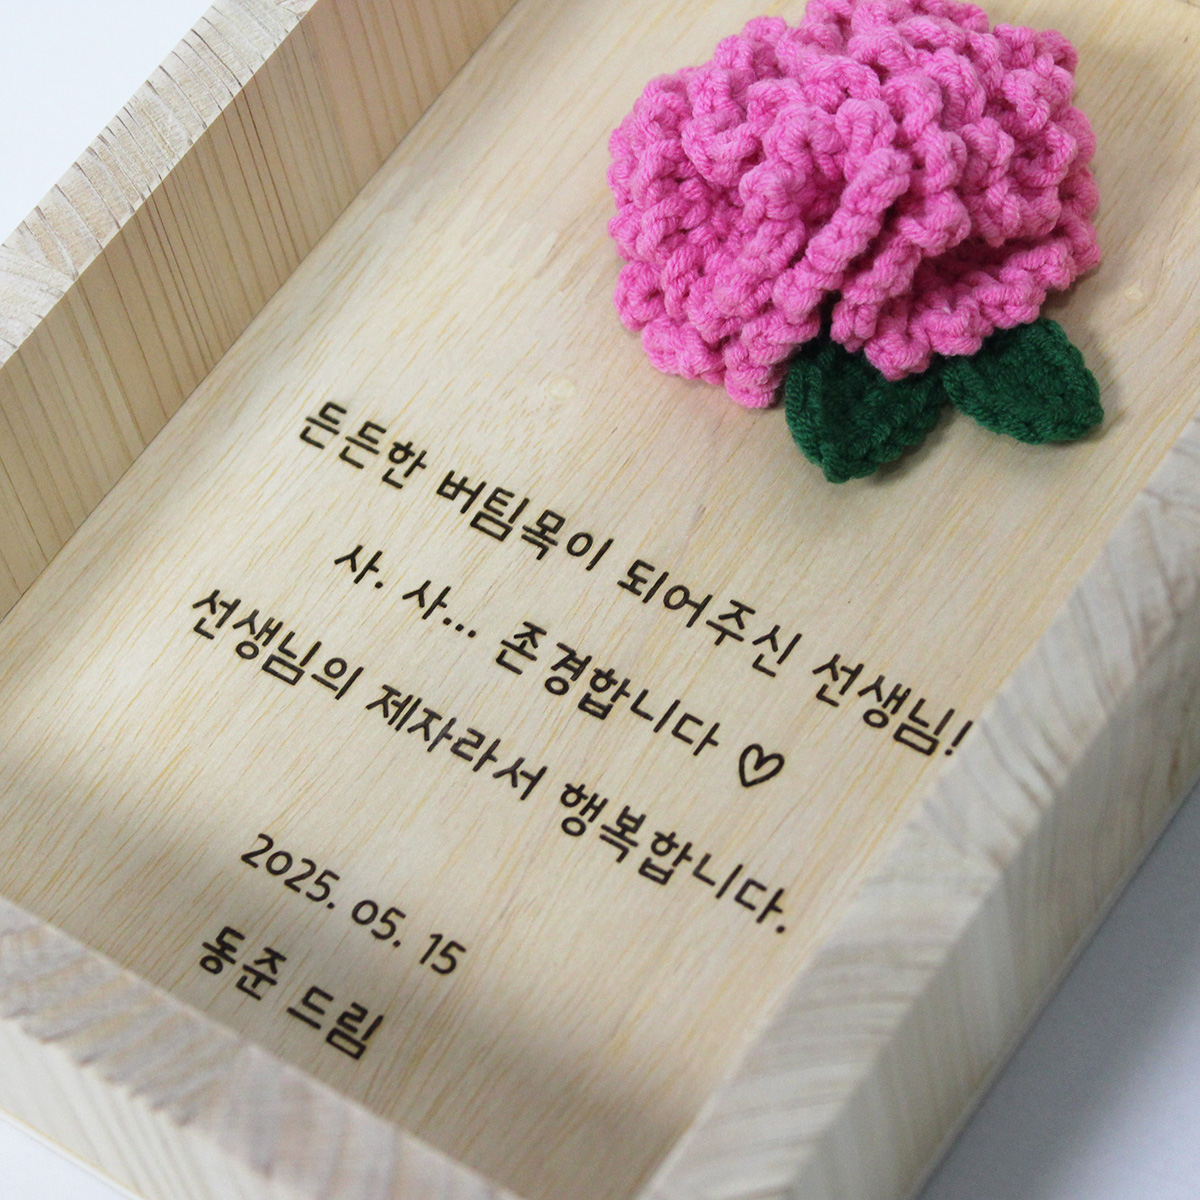 든든한 버팀목이 되어주신 선생님!
사. 사... 존경합니다 ♡
선생님의 제자라서 행복합니다.
2025. 05. 15
동준 드림